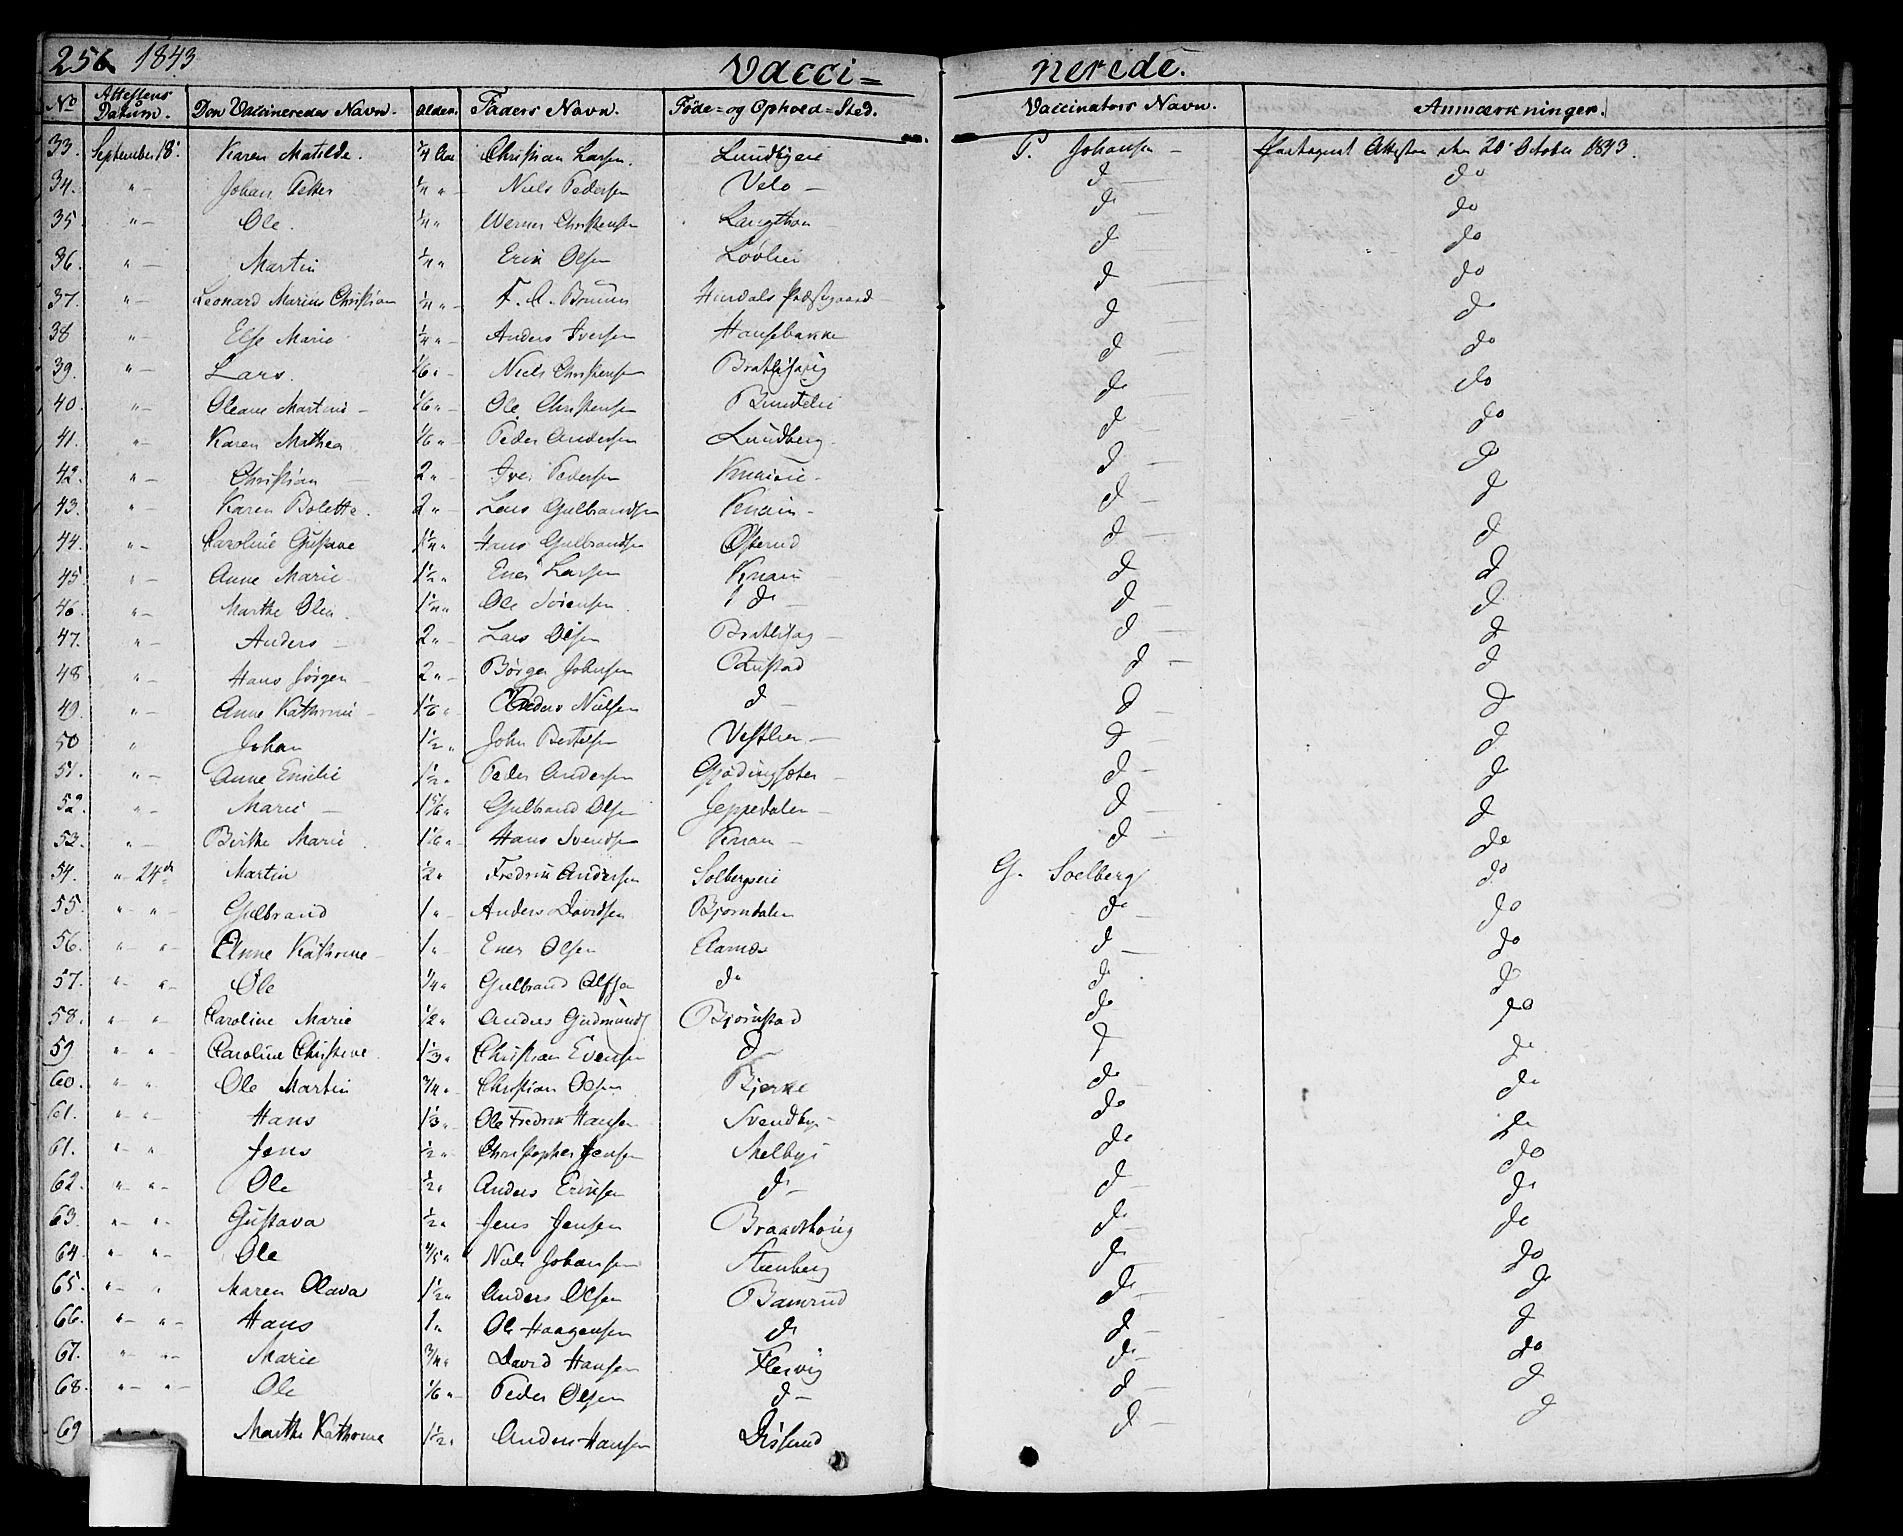 256 1843
Vacci= nerede.
No Attestens Datum. Den Vaccineredes Navn. Alder. Faders Navn. Føde= og Ophold=Sted. Vaccinators Navn. Anmærkninger.
33. September 18. Karen Matilde. 1/4 Aar Christian Larsen. P. Johansen — Attesten den 20 October 1843.
34. " — Johan Petter 1/4 " Niels Pedersen Velo — d — do
35 " — Ole. 1/4 " Werner Christensen d — do
36. " — Martin 1/4 " Erik Olsen Lövlien d — do
37. " — Leonard Marius Christian 1/4 " — Hurdals Præstegaard d — do
38 " — Else Marie 1/4 " — Anders Iversen Hansebakken d — do
39. " — Lars. 1/6 " — Niels Christensen d — do
40. " — Oleane Martine — 1/6 " — Ole Christensen d — do
41. " — Karen Mathea 1/6 " — Peder Andersen Lundberg d — do
42. " — Christian — 2 " — Iver Pedersen d — do
43. " — Karen Bolette. 2 " — Lars Gulbrandsen Knain — d — d
44. " — Caroline Gustave 1 1/4 " Hans Gulbrandsen Østerud d — d
45. " — Anne Marie 1 1/2 " Ener Larsen Knain d d
46. " — Marthe Olea 1 1/4 " Ole Sörensen d — d — d
47. " — Anders — 2 " — Lars Olsen d — d
48 " — Hans Jörgen — 2 " — Börger Johnsen Rustad d — d
49. " — Anne Kathrine — 1 1/6 " Peder Nielsen d — d d
50 " Johan 1 1/2 " John Bertelsen Vestlien — d — d
51. " — Anne Emilie 1 1/2 " Peder Andersen Gjödingsæter — d — d
52. " — Marie — 1 5/6 " Gulbrand Olsen Jeppedalen — d — d
53. " — Birthe Marie 1 1/6 " — Hans Svendsen Knain — d — do
54. " 24de Martin 1/2 " Fredrik Andersen Solbergseie G. Soelberg do
55. " " — Gulbrand 1 " — Anders Davidsen Björndalen do do
56. " " — Anne Kathrine — 1 " Ener Olsen d — do
57. " " — Ole 1/4 " Gulbrand do d d
58. " — " Caroline Marie 1/2 " Anders Gudmunds Björnstad do do
59 " " — Caroline Christine 1 1/3 " Christian Evensen d d do
60. " " Ole Martin 3/4 " Christian Olsen Bjerke do do
61. " " — Hans 1 1/3 " Ole Fredrik Hansen Svendby do do
61. " " Jens 1/2 " Christopher Jensen Melbye do do
62. " " — Ole 1/2 " Anders Eriksen d — d — do
63 " — " — Gustava 1/2 " Jens Jensen d — do
64. " — " — Ole 4/5 " Niels Johansen Steenberg d do
65. " — " Maren Olava 1 1/2 " Anders Olsen Bamrud d — d
66. " — " — Hans 1 " Ole Haagensen d d — d
67. " — " — Marie 3/4 " David Hansen Flesvig d — do
68. " — " — Ole 1/6 " Peder Olsen d — d — d
69 " — " — Marthe Kathrine 1 1/2 " Anders Hansen Disserud d — d